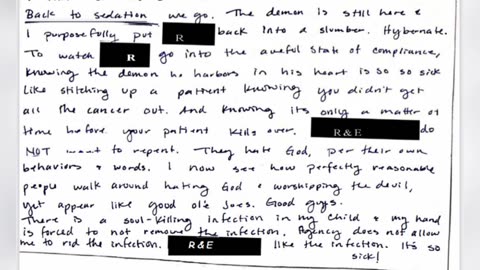 Back to sedation we go. The demon is still here &
I purposfully put R back into a slumber. Hybernate.
To watch R go into the aweful state of compliance,
knowing the demon he harbors in his heart is so so sick
like stitching up a patient knowing you didn't get
all the cancer out. And knowing its only a matter of
time before your patient kills over. R & E do
NOT want to repent. They hate God, per their own
behaviors & words. I now see how perfectly reasonable
people walk around hating God & worshipping the devil,
yet appear like good ole joes. Good guys.
There is a soul-killing infection in my child & my hand
is forced to not remove the infection. Agency does not allow
me to rid the infection. R&E like the infection. It's so
sick!